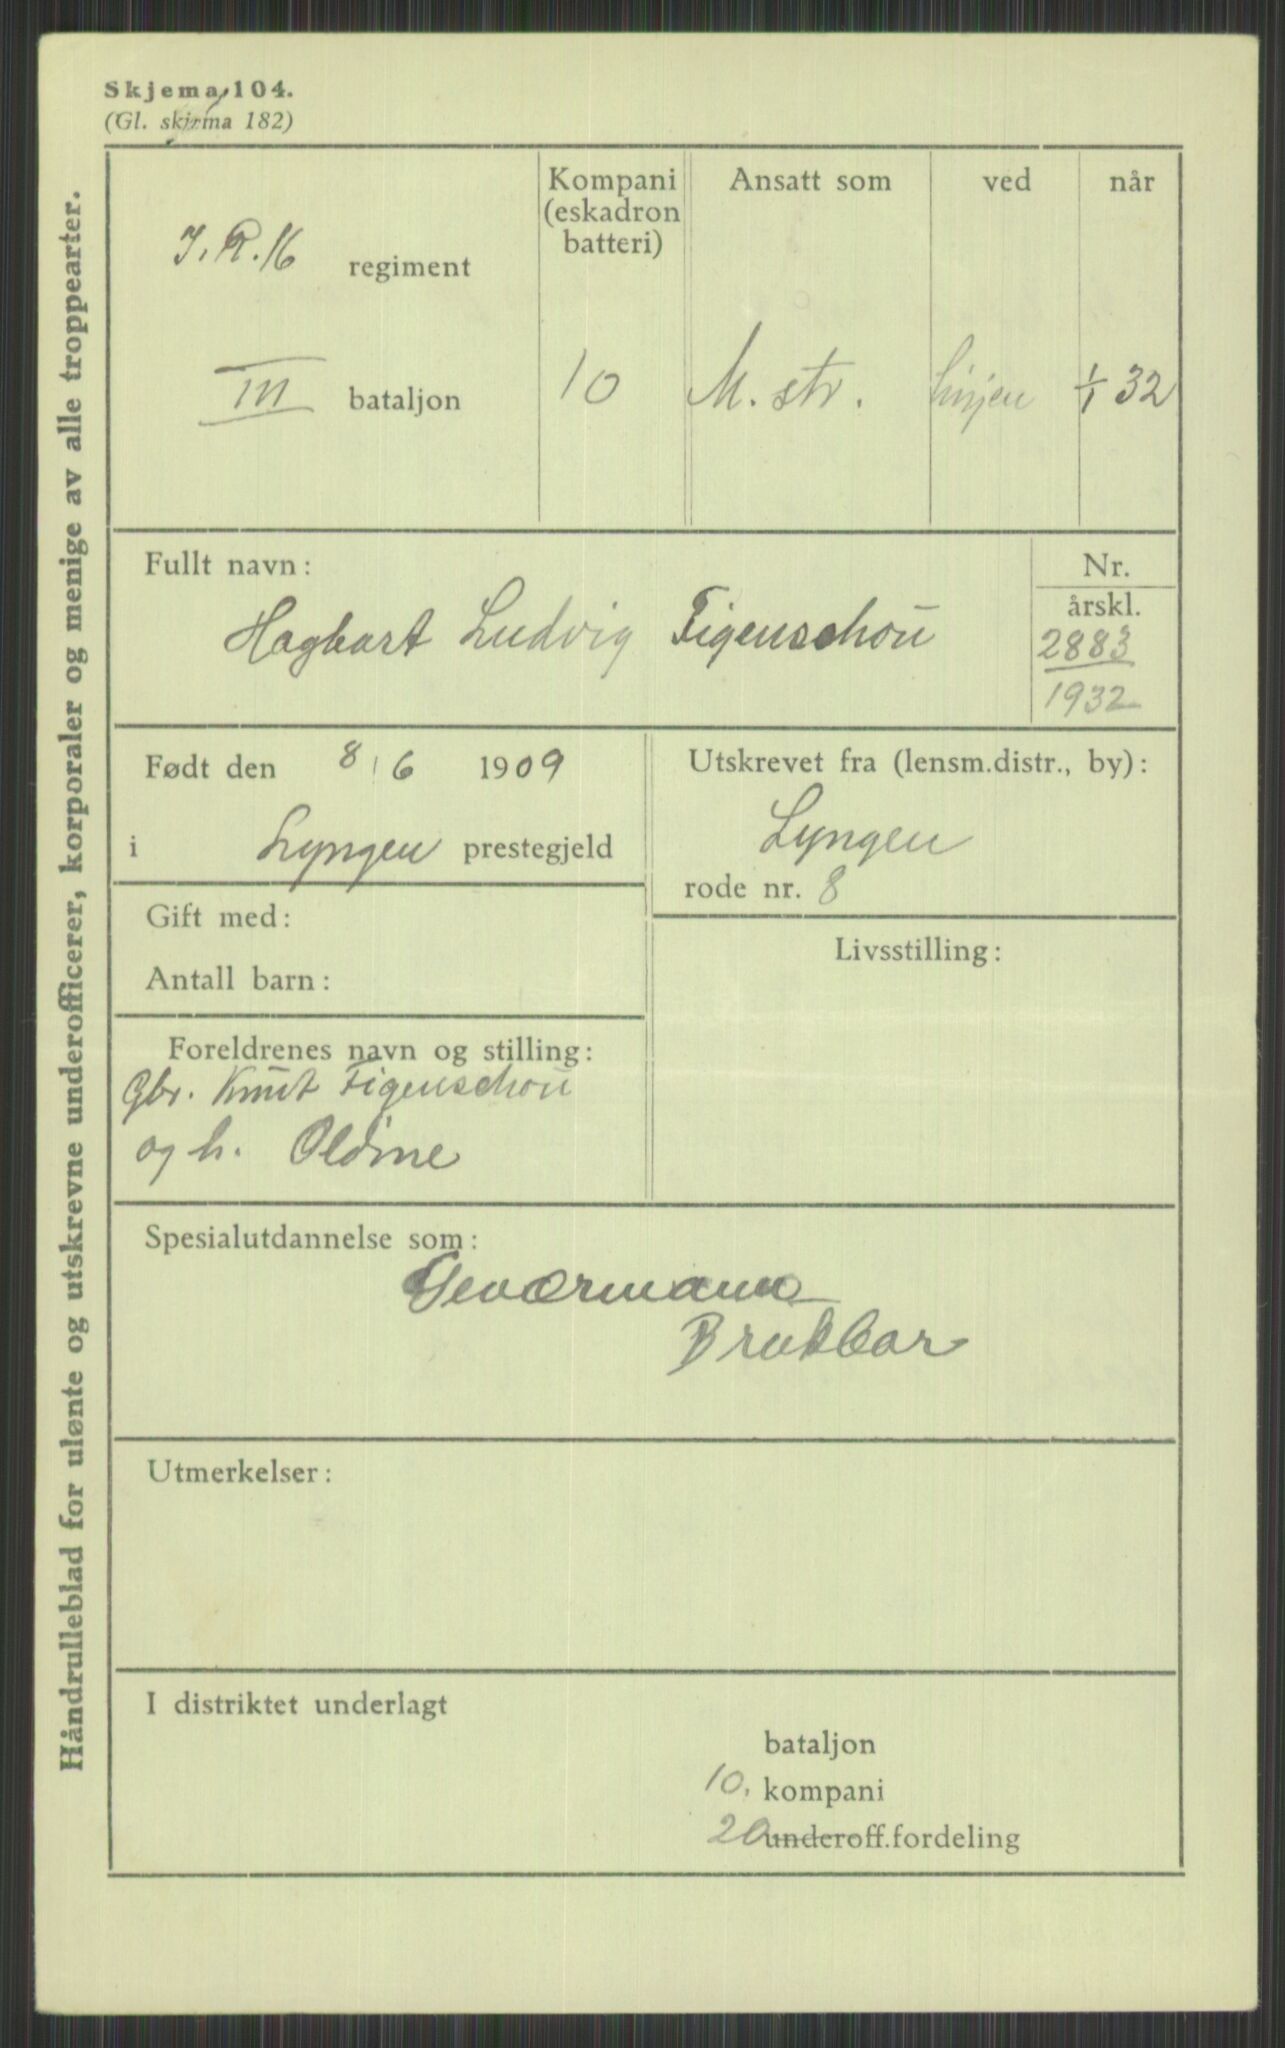 Skjema 104.
(Gl. skjema 182)
Håndrulleblad for ulønte og utskrevne underofficerer, korporaler og menige av alle troppearter.
I. R. 16 regiment
III bataljon
Kompani
(eskadron
batteri)
10
Ansatt som
M. str.
ved
linjen
når
1/1 32
Fullt navn:
Hagbart Ludvig Figenschou
Nr.
årskl.
2883
1932
Født den 8/6 1909
i Lyngen prestegjeld
Utskrevet fra (lensm.distr., by):
Lyngen
rode nr. 8
Gift med:
Antall barn:
Livsstilling:
Foreldrenes navn og stilling:
Gbr. Knut Figenschou
og h. Oldine
Spesialutdannelse som:
Geværmann
Brukbar
Utmerkelser:
I distriktet underlagt
bataljon
10. kompani
20 underoff.fordeling